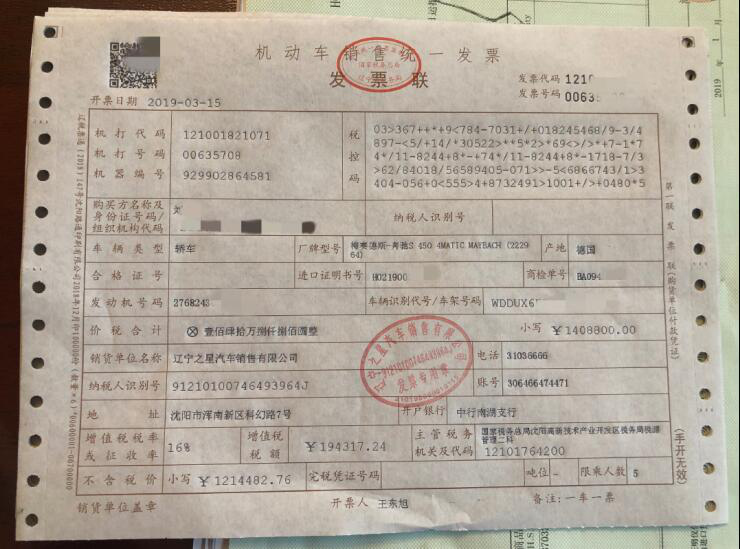 机动车销售统一发票
发票联
发票代码 121
发票号码 0063
开票日期 2019-03-15
机打代码 121001821071
机打号码 00635708
机器编号 929902864581
税控码
03>367+++9<784-7031+/+018245468/9-3/4
897-<5/+14/*30522>**5*2>*69<>/>*+7-1*74
*/11-8244+8*-+74*/11-8244+8*-1718-7/3
>62/84018/56589405-071>>-5<6866743/1>3
404-056+0<555>4+8732491>1001+/>+0480*5
购买方名称及
身份证号码/
组织机构代码
纳税人识别号
车辆类型 轿车 厂牌型号 梅赛德斯-奔驰S 450 4MATIC MAYBACH (222964) 产地 德国
合格证号 进口证明书号 H021900 商检单号 BA094
发动机号码 2768243 车辆识别代号/车架号码 WDDUX6
价税合计 ⊗ 壹佰肆拾万捌仟捌佰圆整 小写 ￥1408800.00
销货单位名称 辽宁之星汽车销售有限公司 电话 31036666
纳税人识别号 91210100746493964J 账号 306466474471
地址 沈阳市浑南新区科幻路7号 开户银行 中行南湖支行
增值税税率
或征收率 16% 增值税
税额 ￥194317.24 主管税务
机关及代码 国家税务总局沈阳高新技术产业开发区税务局税源
管理二科
12101764200
不含税价 小写 ￥1214482.76 完税凭证号码 吨位 - 限乘人数 5
销货单位盖章 开票人 王东旭 备注:一车一票
第一联 发票联(购货单位付款凭证)
(手开无效)
辽宁之星汽车销售有限
91210100746493964J
发票专用章
2019年1月